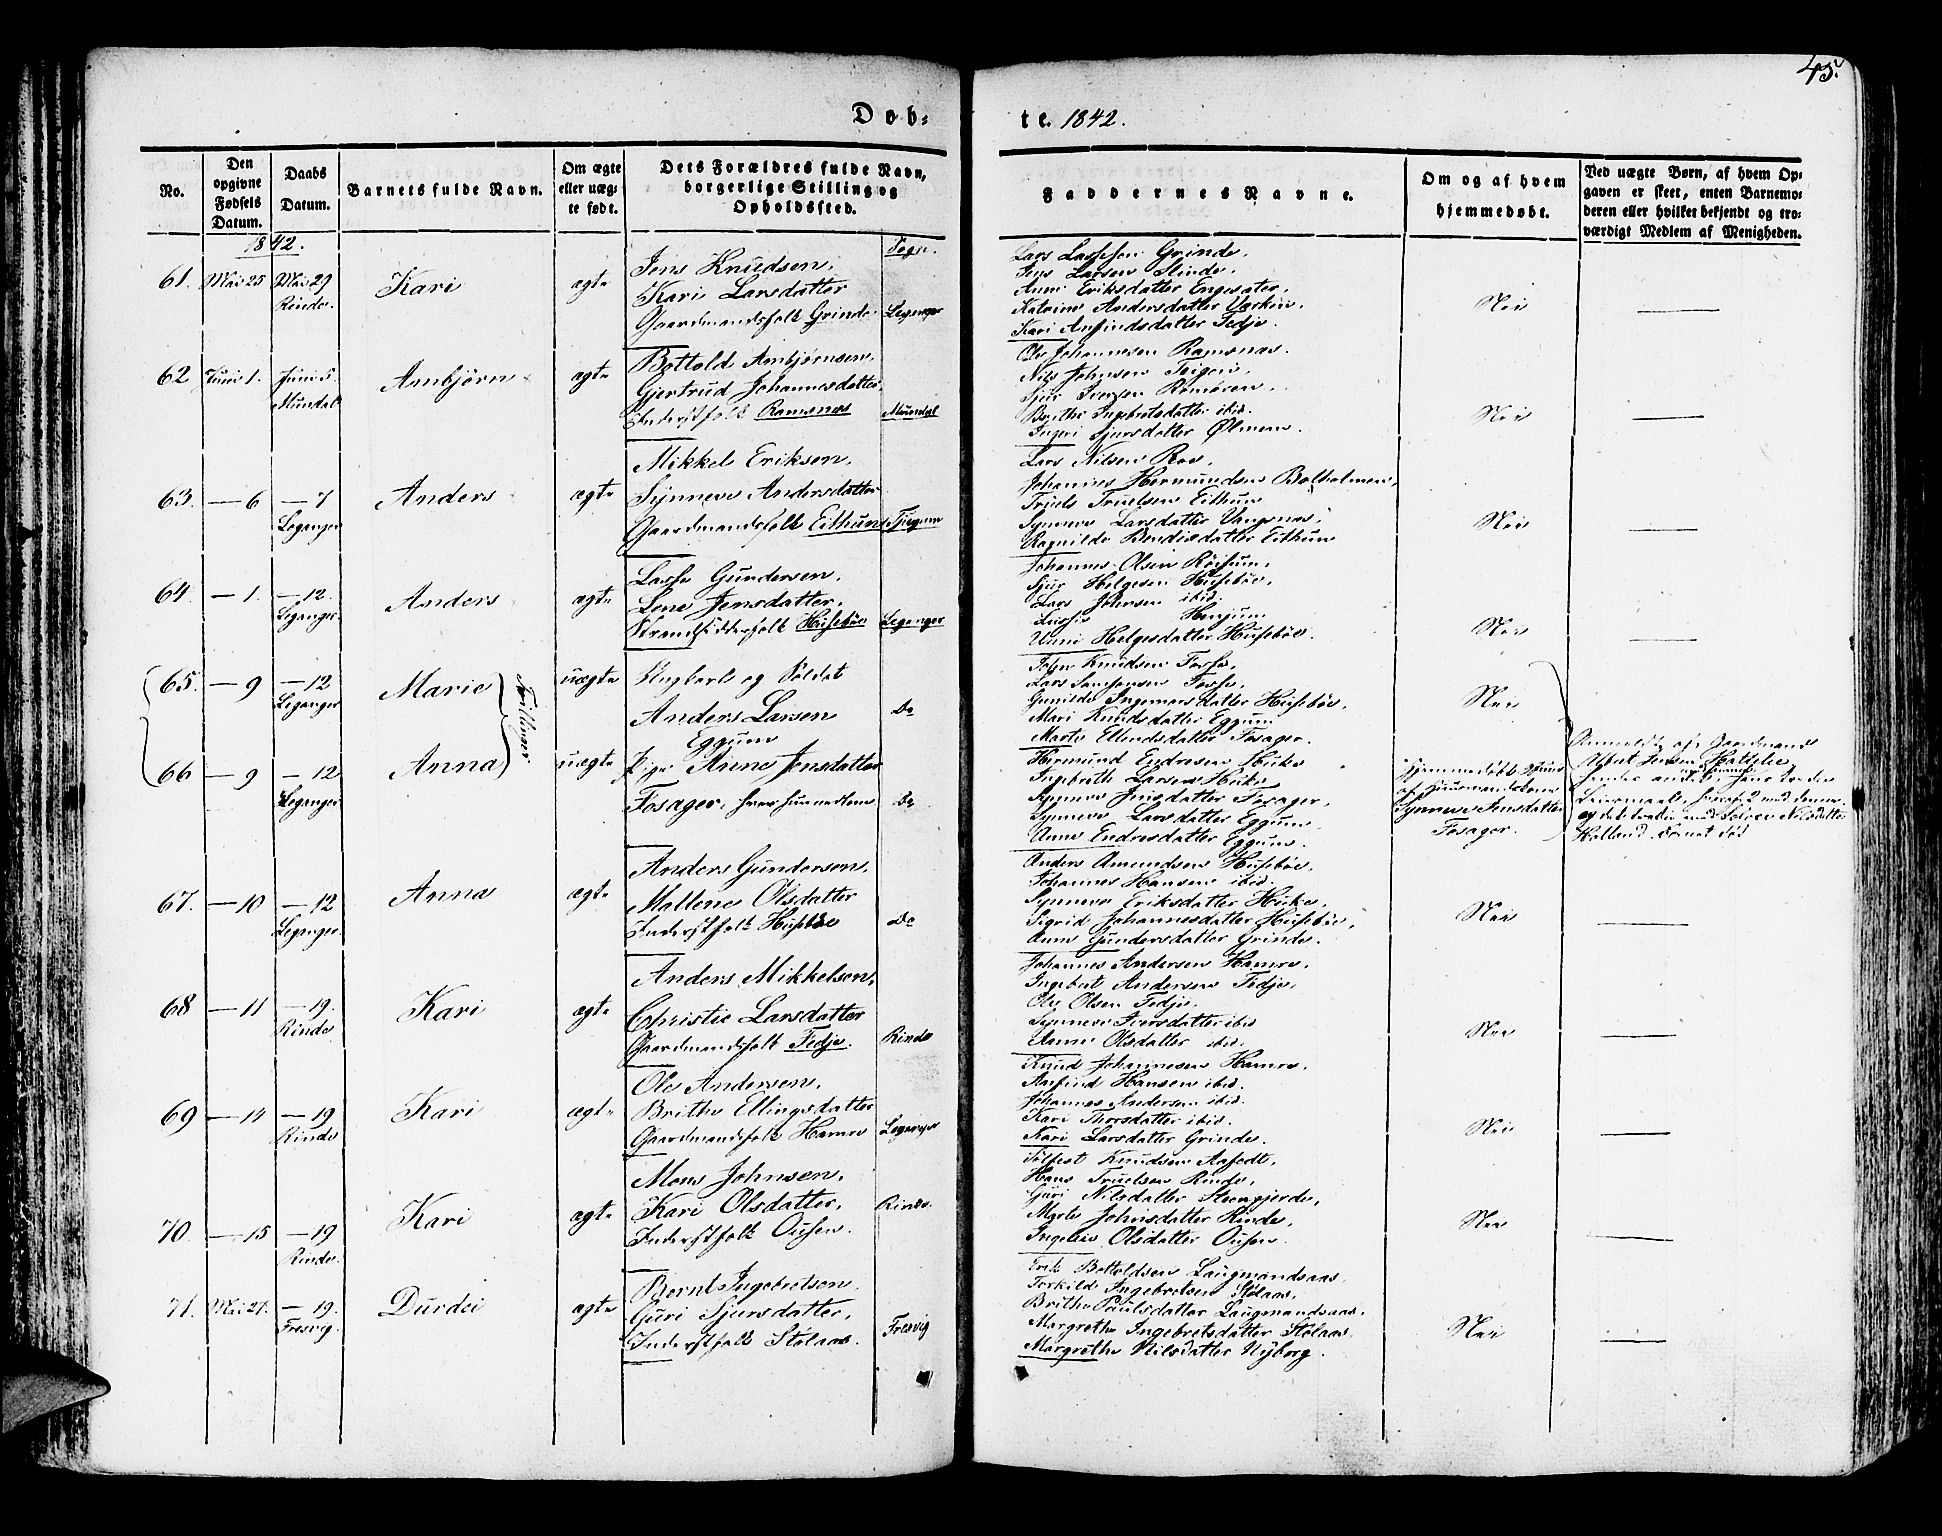 45.
Døb-
te. 1842.
No.
Den opgivne Fødsels Datum.
Daabs Datum.
Barnets fulde Navn.
Om ægte eller uæg-te født.
Dets Forældres fulde Navn, borgerlige Stilling og Opholdssted.
Faddernes Navne.
Om og af hvem hjemmedøbt.
Ved uægte Børn, af hvem Op-
gaven er skeet, enten Barnemo-
deren eller hvilket bekjendt og tro-
værdigt Medlem af Menigheden.
1842.
Sogn.
61. Mai 25 Mai 29 Rinde. Kari ægte
Jens Knudsen,
Kari Larsdatter
Gaardmandsfolk Grinde Leganger
Lars Lassesen Grinde,
Jens Larsen Slinde,
Anne Eriksdatter Engesæter,
Katrine Andersdatter
Kari Anfindsdatter Fedje.
Nei
62 Juni 1. Juni 5. Mundal Ambjørn ægte
Bottold Ambjørnsen,
Gjertrud Johannesdatter,
Inderstfolk Ramsnæs Mundal
Ole Johannesen Ramsnæs.
Nils Johnsen Teigen,
Sjur Iversen Romøren,
Brithe Ingebretsdatter ibid.
Ingeri Sjursdatter Ølmem.
Nei
63. — 6 — 7 Leganger Anders ægte
Mikkel Eriksen,
Synneve Andersdatter
Gaardmandsfolk Eithun Tjugum
Lars Nilsen Roe,
Johannes Hermundsen Bolholmen,
Truels Truelsen Eithun
Synneve Larsdatter Vangsnæs,
Ragnilde Bendixdatter Eithun
Nei
64. — 1. — 12. Leganger. Anders ægte
Lasse Gundersen,
Lene Jensdatter,
Strandsidderfolk Husebøe Leganger
Johannes Olsen Röisum,
Sjur Helgesen Husebøe,
Lars Johnsen ibid.
Lasse Henjum
Unni Helgesdatter Husebøe.
Nei
65. — 9 — 12 Leganger Marie uægte
Tvillinger.
Ungkarl og Soldat
Anders Larsen
Eggum
Do
John Knudsen Fosse,
Lars Samsonsen Fosse,
Gunilde Ingemarsdatter Husebøe,
Mari Knudsdatter Eggum
Marte Ellendsdatter Fosager.
Nei
66 — 9 — 12 Leganger Anna uægte
Pige Anne Jensdatter
Fosager,
Do
Hermund Endresen Heke
Ingebreth Larsen Heke
Synneve Jensdatter Fosager,
Synneve Larsdatter Eggum,
Anne Endresdatter Eggum.
Hjemmedøbt
af
Synneve Jensdatter
Fosager.
Anmeldte af Gaardmand
67. — 10 — 12 Leganger. Anna ægte
Anders Gundersen,
Mallene Olsdatter
Inderstfolk Husebøe Do
Anders Amundsen Husebøe,
Johannes Hansen ibid.
Synneve Eriksdatter Heke,
Sigrid Johannesdatter Husebøe,
Anne Gundersdatter Grinde.
Nei
68 — 11 — 19. Rinde Kari ægte
Anders Mikkelsen,
Christie Larsdatter
Gaardmandsfolk Fedje. Rinde
Johannes Andersen Hamre,
Ingebret Andersen Fedje,
Ole Olsen Fedje.
Synneve Iversdatter ibid
Anne Olsdatter ibid.
Nei
69 — 14 — 19 Rinde Kari ægte
Ole Andersen,
Brithe Ellingsdatter
Gaardmandsfolk Hamre Leganger
Knud Johannesen Hamre,
Anfind Hansen ibid.
Johannes Andersen ibid.
Kari Thorsdatter ibid.
Kari Larsdatter Grinde.
Nei
70 — 15 — 19 Rinde. Kari ægte
Mons Johnsen,
Kari Olsdatter,
Inderstfolk Ousen. Rinde.
Tolfest Knudsen Aafedt,
Hans Truelsen Rinde,
Guri Nilsdatter
Myrte Johnsdatter Rinde,
Ingeleiv Olsdatter Ousen
Nei
71. Mai 27. — 19. Fresvig. Durdei ægte
Bernt Ingebretsen
Guri Sjursdatter,
Inderstfolk Stølaas. Fresvig
Erik Bottoldsen Laugmandsaas,
Torkild Ingebretsen Stølaas,
Brithe Paulsdatter Laugmandsaas,
Margrethe Ingebretsdatter Stølaas,
Margrethe Nilsdatter Nyborg.
Nei